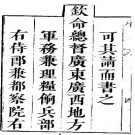 可其請而書之
欽命總督廣東廣西地方
軍務兼理糧餉兵部
右侍郎兼都察院右